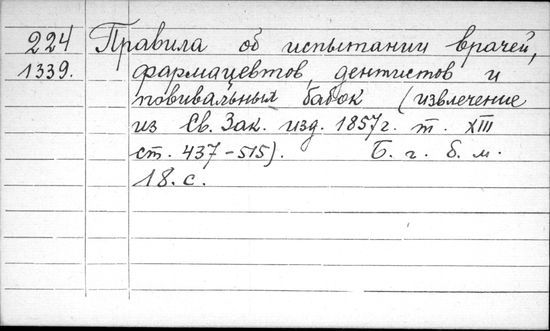 224 Правила об испытании врачей,
1339. фармацевтов, дентистов и
повивальных бабок (извлечение
из Св. Зак. изд. 1857 г. т. XIII
ст. 437-515). Б. г. б. м.
18. с.